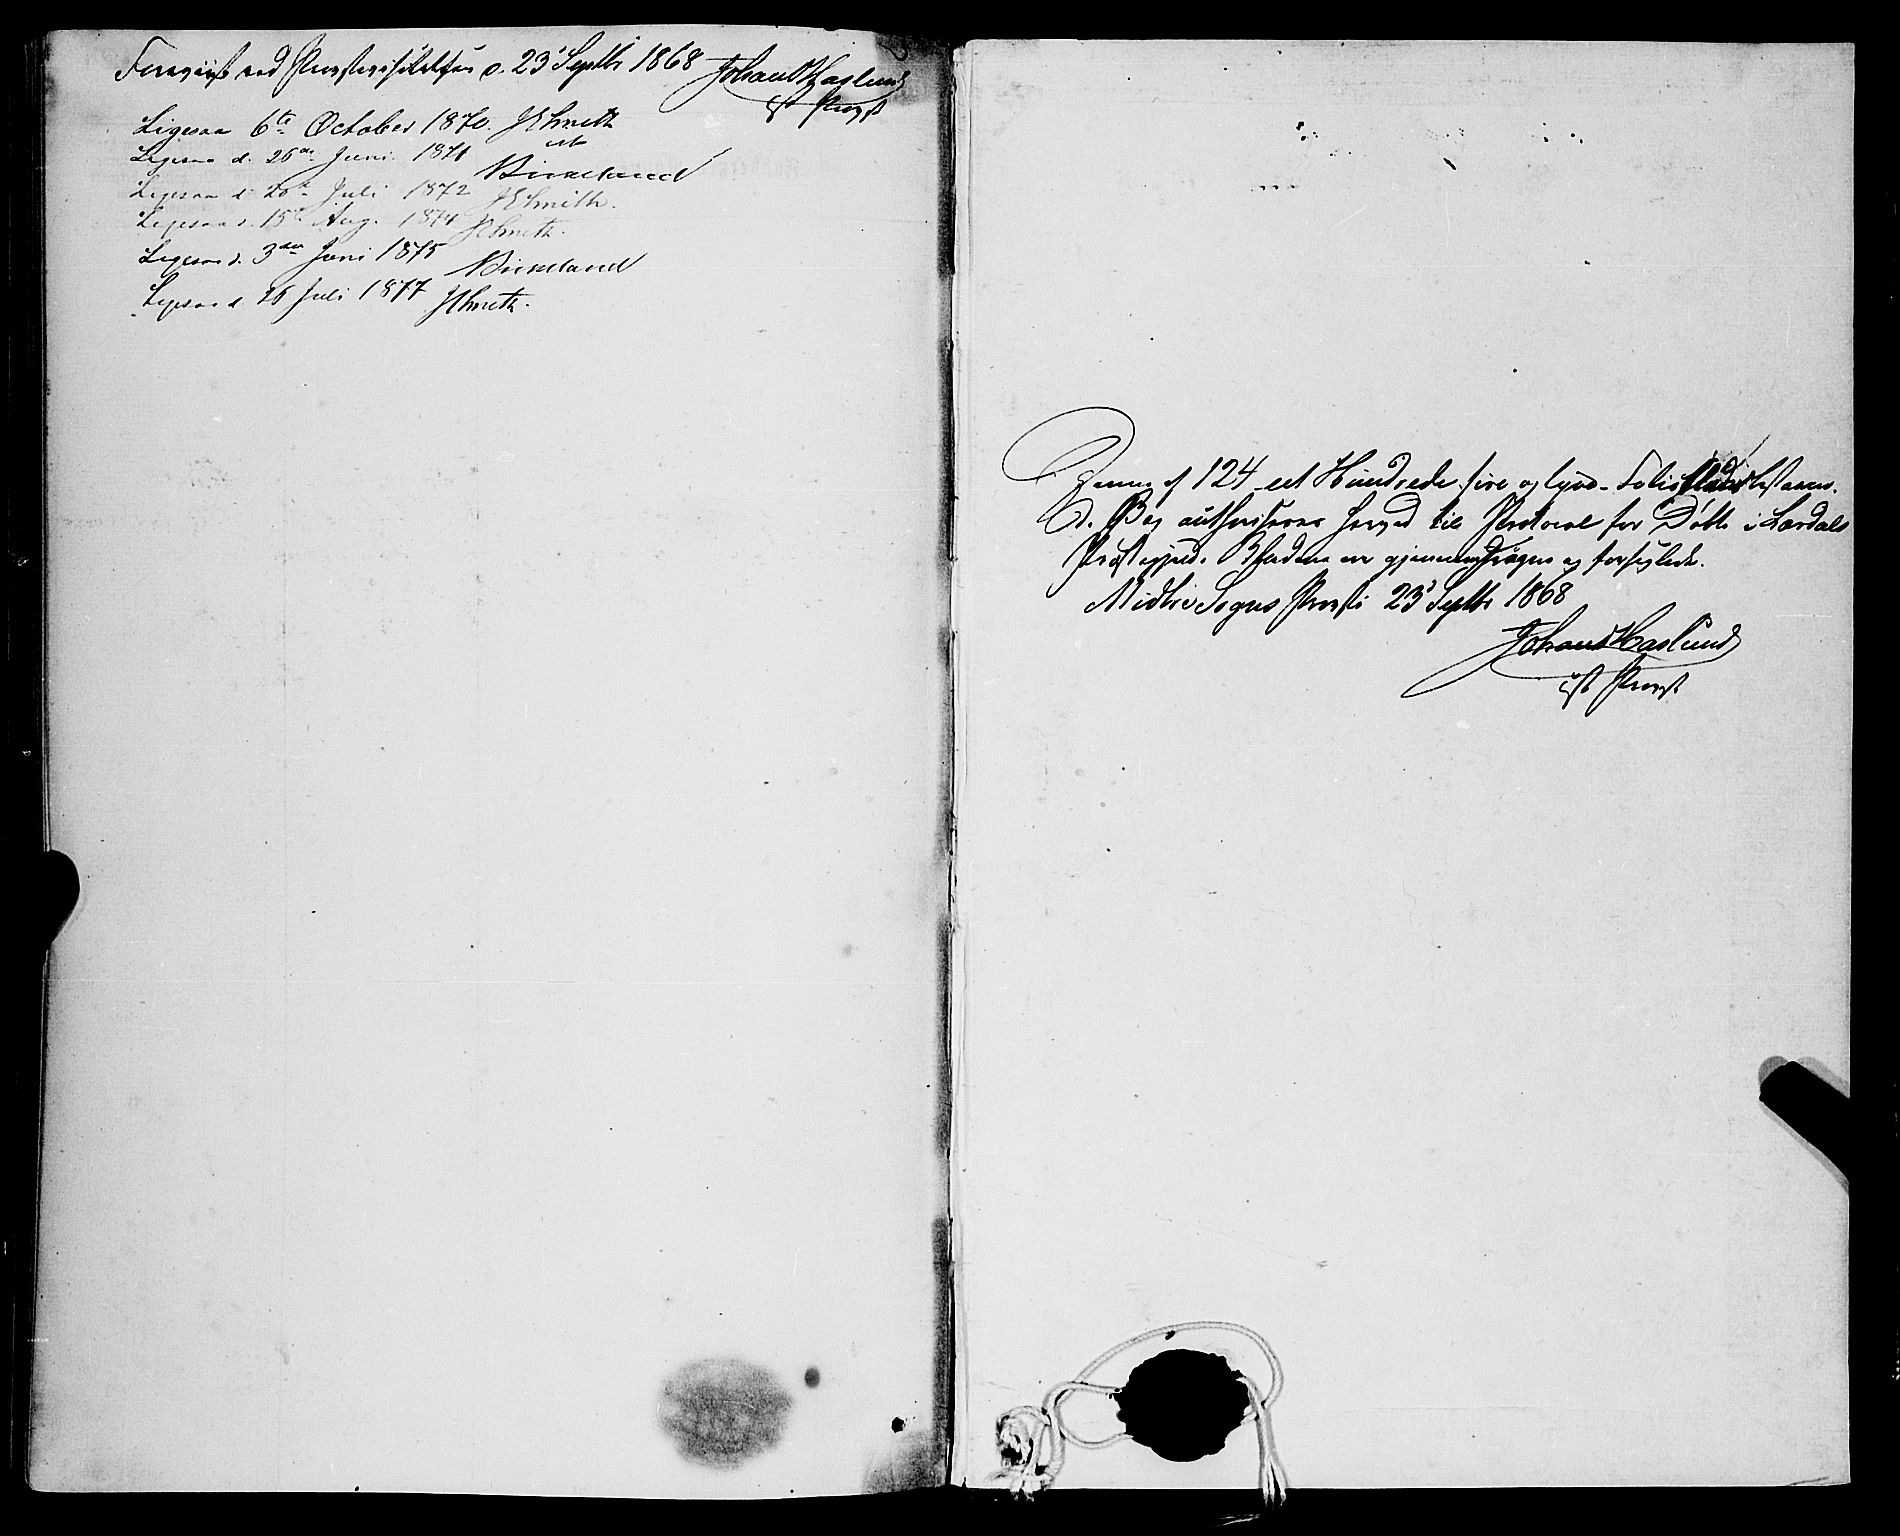 Foreviist ved Provstevisitatsen d. 23' Septbr 1868 Johan Haslund
cst Provst
Ligesaa 6te October 1870. JESmith
cst
Ligesaa d. 26de Juni 1871 Birkeland
Ligesaa d 20de Juli 1872 JESmith.
Ligesaa d. 15de Aug. 1874 JESmith.
Ligesaa d. 3die Juni 1875 Birkeland
Ligesaa d 26 Juli 1877 JESmith.
Denne af 124 et Hundrede fire og tyve Folioblade bestaaen-
de Bog authoriseres herved til Protocol for Døbte i Lærdals
Præstegjeld. Bladene ere gjennemdragne og forseglede.
Midtre Sogns Provsti 23' Septbr 1868
Johan Haslund
cst Provst